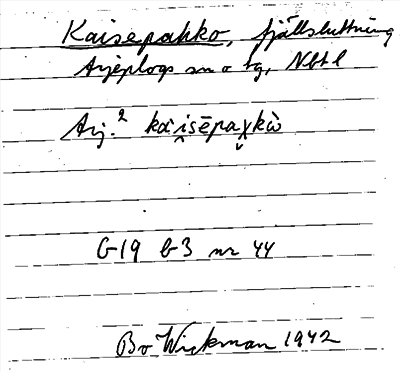 Kaisepahko, fjällsluttning
Arjeplogs sn o tg, Nbtl
Arj.² kài̭sēpaχ̬kò̀
G19 b3 nr 44
Bo Wickman 1942